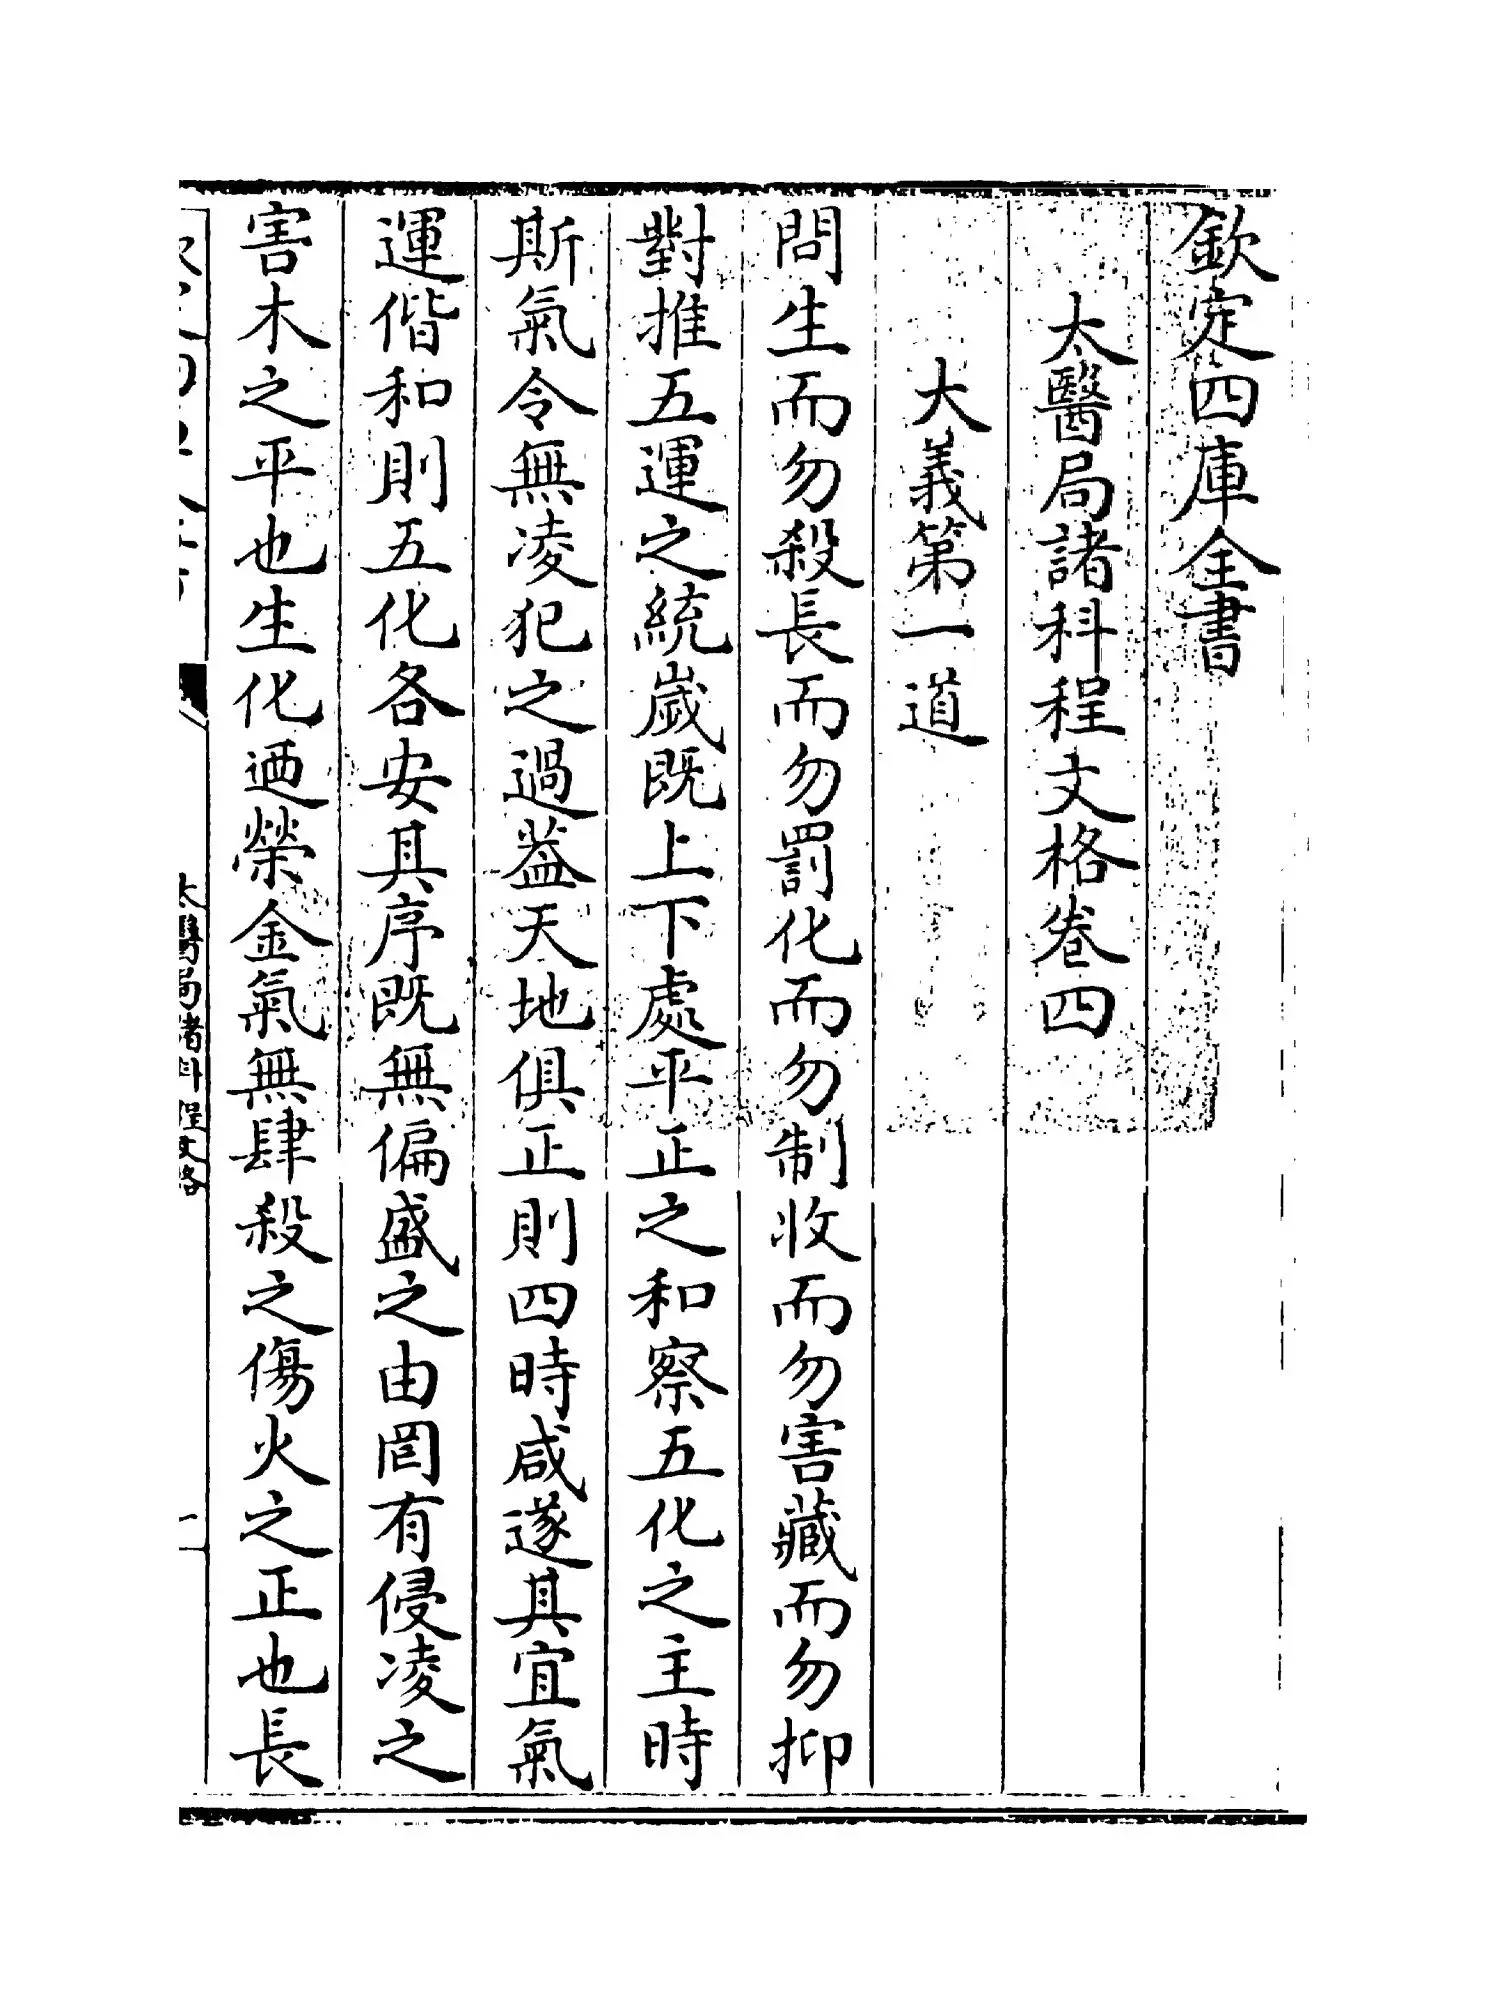 欽定四庫全書
太醫局諸科程文格卷四
大義第一道
問生而勿殺長而勿罰化而勿制收而勿害藏而勿抑
對推五運之統歲既上下處平正之和察五化之主時
斯氣令無凌犯之過葢天地俱正則四時咸遂其宜氣
運偕和則五化各安其序既無偏盛之由罔有侵凌之
害木之平也生化迺榮金氣無肆殺之傷火之正也長
太醫局諸科程文格